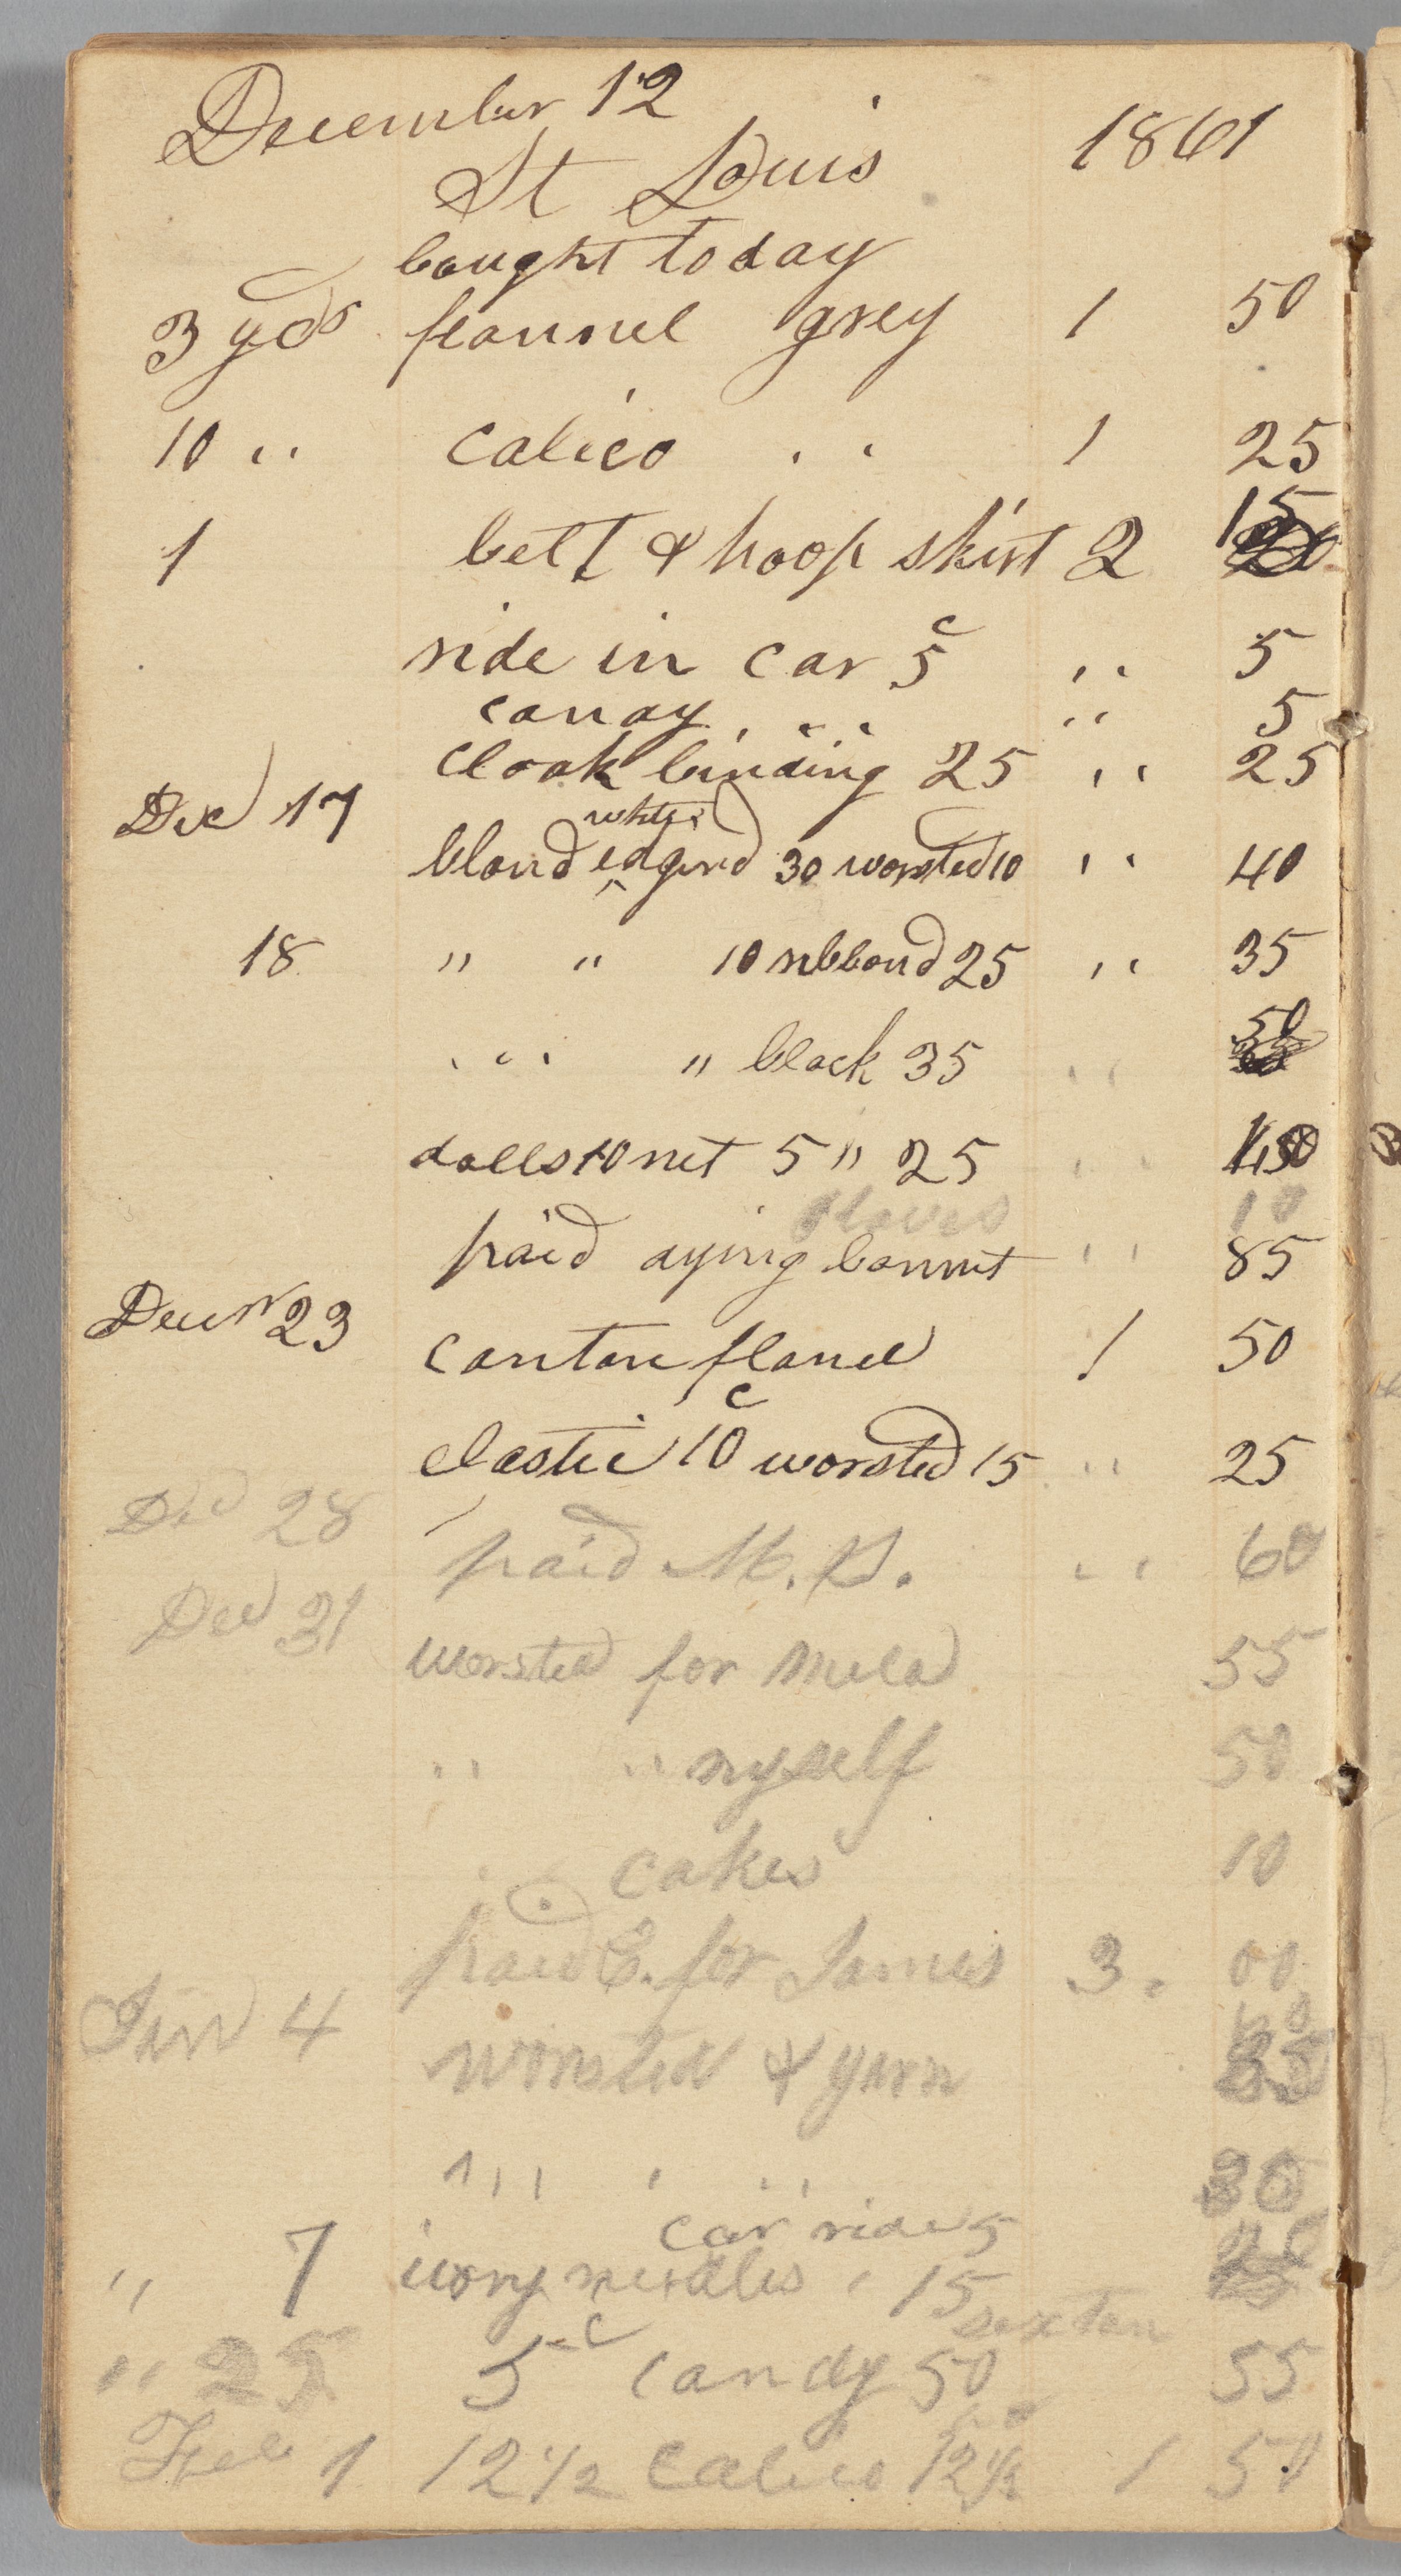 December 12 1861
St Louis
bought today
3 yds flannel grey 1 50
10 " calico " 1 25
1 belt & hoop skirt 2 15
ride in car 5c " 5
candy " " 5
cloak binding 25 " 25
Dec 17
white
blond edgind 30 worsted 10 " 40
18 " " 10 ribbond 25 " 35
" " black 35 " 50
dolls 10 net 5 " 25 "
gloves 10
paid dying bonnet " 85
Decm 23
canton flanel 1 50
elastic 10c worsted 15 " 25
Dec 28
paid M. " 60
Dec 31
worsted for Mela 55
" " myself 50
cakes 10
paid E. for James 3. 00
Jan 4
worsted & yarn
" " " 30
car ride 5
" 7 ivory needles 15
sexton
" 25 5c candy 50 55
Feb 1 12 1/2 calico 12 1/2 1 50